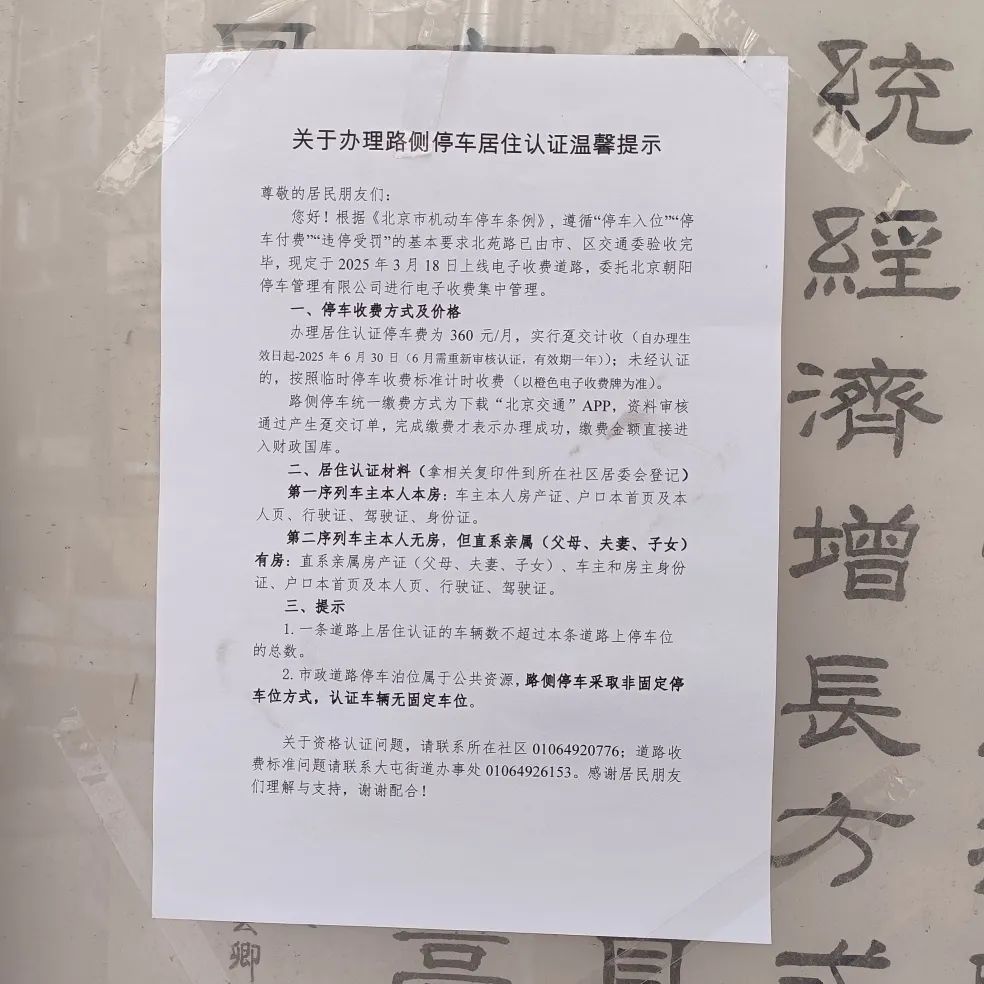 关于办理路侧停车居住认证温馨提示
尊敬的居民朋友们：
您好！根据《北京市机动车停车条例》，遵循“停车入位”“停
车付费”“违停受罚”的基本要求北苑路已由市、区交通委验收完
毕，现定于 2025 年 3 月 18 日上线电子收费道路，委托北京朝阳
停车管理有限公司进行电子收费集中管理。
一、停车收费方式及价格
办理居住认证停车费为 360 元/月，实行趸交计收（自办理生
效日起-2025 年 6 月 30 日（6 月需重新审核认证，有效期一年））；未经认证
的，按照临时停车收费标准计时收费（以橙色电子收费牌为准）。
路侧停车统一缴费方式为下载“北京交通”APP，资料审核
通过产生趸交订单，完成缴费才表示办理成功，缴费金额直接进
入财政国库。
二、居住认证材料（拿相关复印件到所在社区居委会登记）
第一序列车主本人本房：车主本人房产证、户口本首页及本
人页、行驶证、驾驶证、身份证。
第二序列车主本人无房，但直系亲属（父母、夫妻、子女）
有房：直系亲属房产证（父母、夫妻、子女）、车主和房主身份
证、户口本首页及本人页、行驶证、驾驶证。
三、提示
1. 一条道路上居住认证的车辆数不超过本条道路上停车位
的总数。
2. 市政道路停车泊位属于公共资源，路侧停车采取非固定停
车位方式，认证车辆无固定车位。
关于资格认证问题，请联系所在社区 01064920776；道路收
费标准问题请联系大屯街道办事处 01064926153。感谢居民朋友
们理解与支持，谢谢配合！
統經濟增長方式
卿